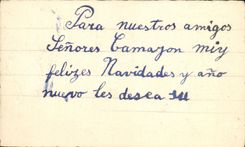 Para nuestros amigos
Señores Tamayon muy
felizes Navidades y año
nuevo les desea su